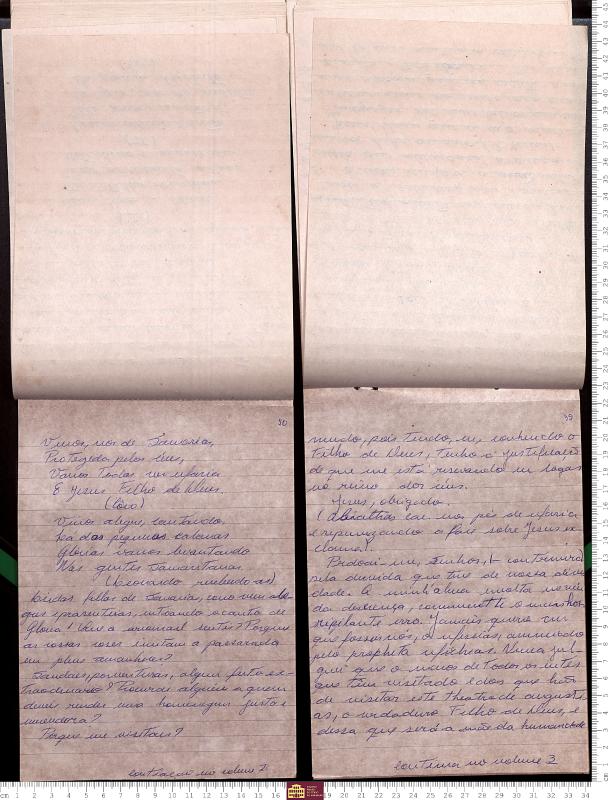 30
Vinos, nos de Samaria,
Protegida pelos Ceus,
Vamos Todas na Maria
E Jesus Filho de Deus.
(Côro)
Vimos alegres, cantando,
La das pequenas cabanas
Glorias vamos levantando
Nas gentes Samaritanas.
(Leovardo recebendo as)
lindas filhas de Samaria, como vem ale-
gres e prasenteiras, entoando o canto de
Gloria! Que é o animal sentis? Porque
as vossas voses imitam a passarada
em pleno amanhecer?
Saudaes, por venturas, algum justo ex-
traordinario? Procurae alguem a quem
deveis render uma homenagem justa e
Porque me visitaes?
continuação no volume 2
39
mundo, pois tendo, eu, conhecido o
Filho de Deus, tenho a justificação
de que me está reservado um lugar
no reino dos ceus.
Jesus, obrigado
cae nos pés de Maria
e o Pae sobre Jesus ex-
clama!.
Perdoai-me, Senhor,
pela duvida que tive de vossa divin-
dade. A minh'alma envolta no véu
da descrença, commetteu o mais hor-
ripilante erro. Jamais queria crer
que fosseis vós, o Messias, annunciado
pelo propheta Micheas. Nunca jul-
guei que o menos de todos os entes
que tem visitado e dos que hão
de visitar este theatro de angusti-
as, o verdadeiro Filho de Deus, e
dessa que será a mãe da humanidade
continua no volume 2